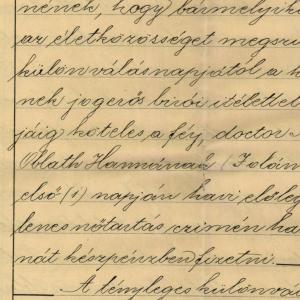 nének, hogy bármelyik
az életközösséget megszü
különválás napjától a h
nek jogerős birói itélettel
jáig köteles a férj, doctor
Oblath Hannának (Jolán
első (1) napján havi előleg
lenes nőtartás czimén ha
nát készpénzben fizetni. —
A tényleges különvál